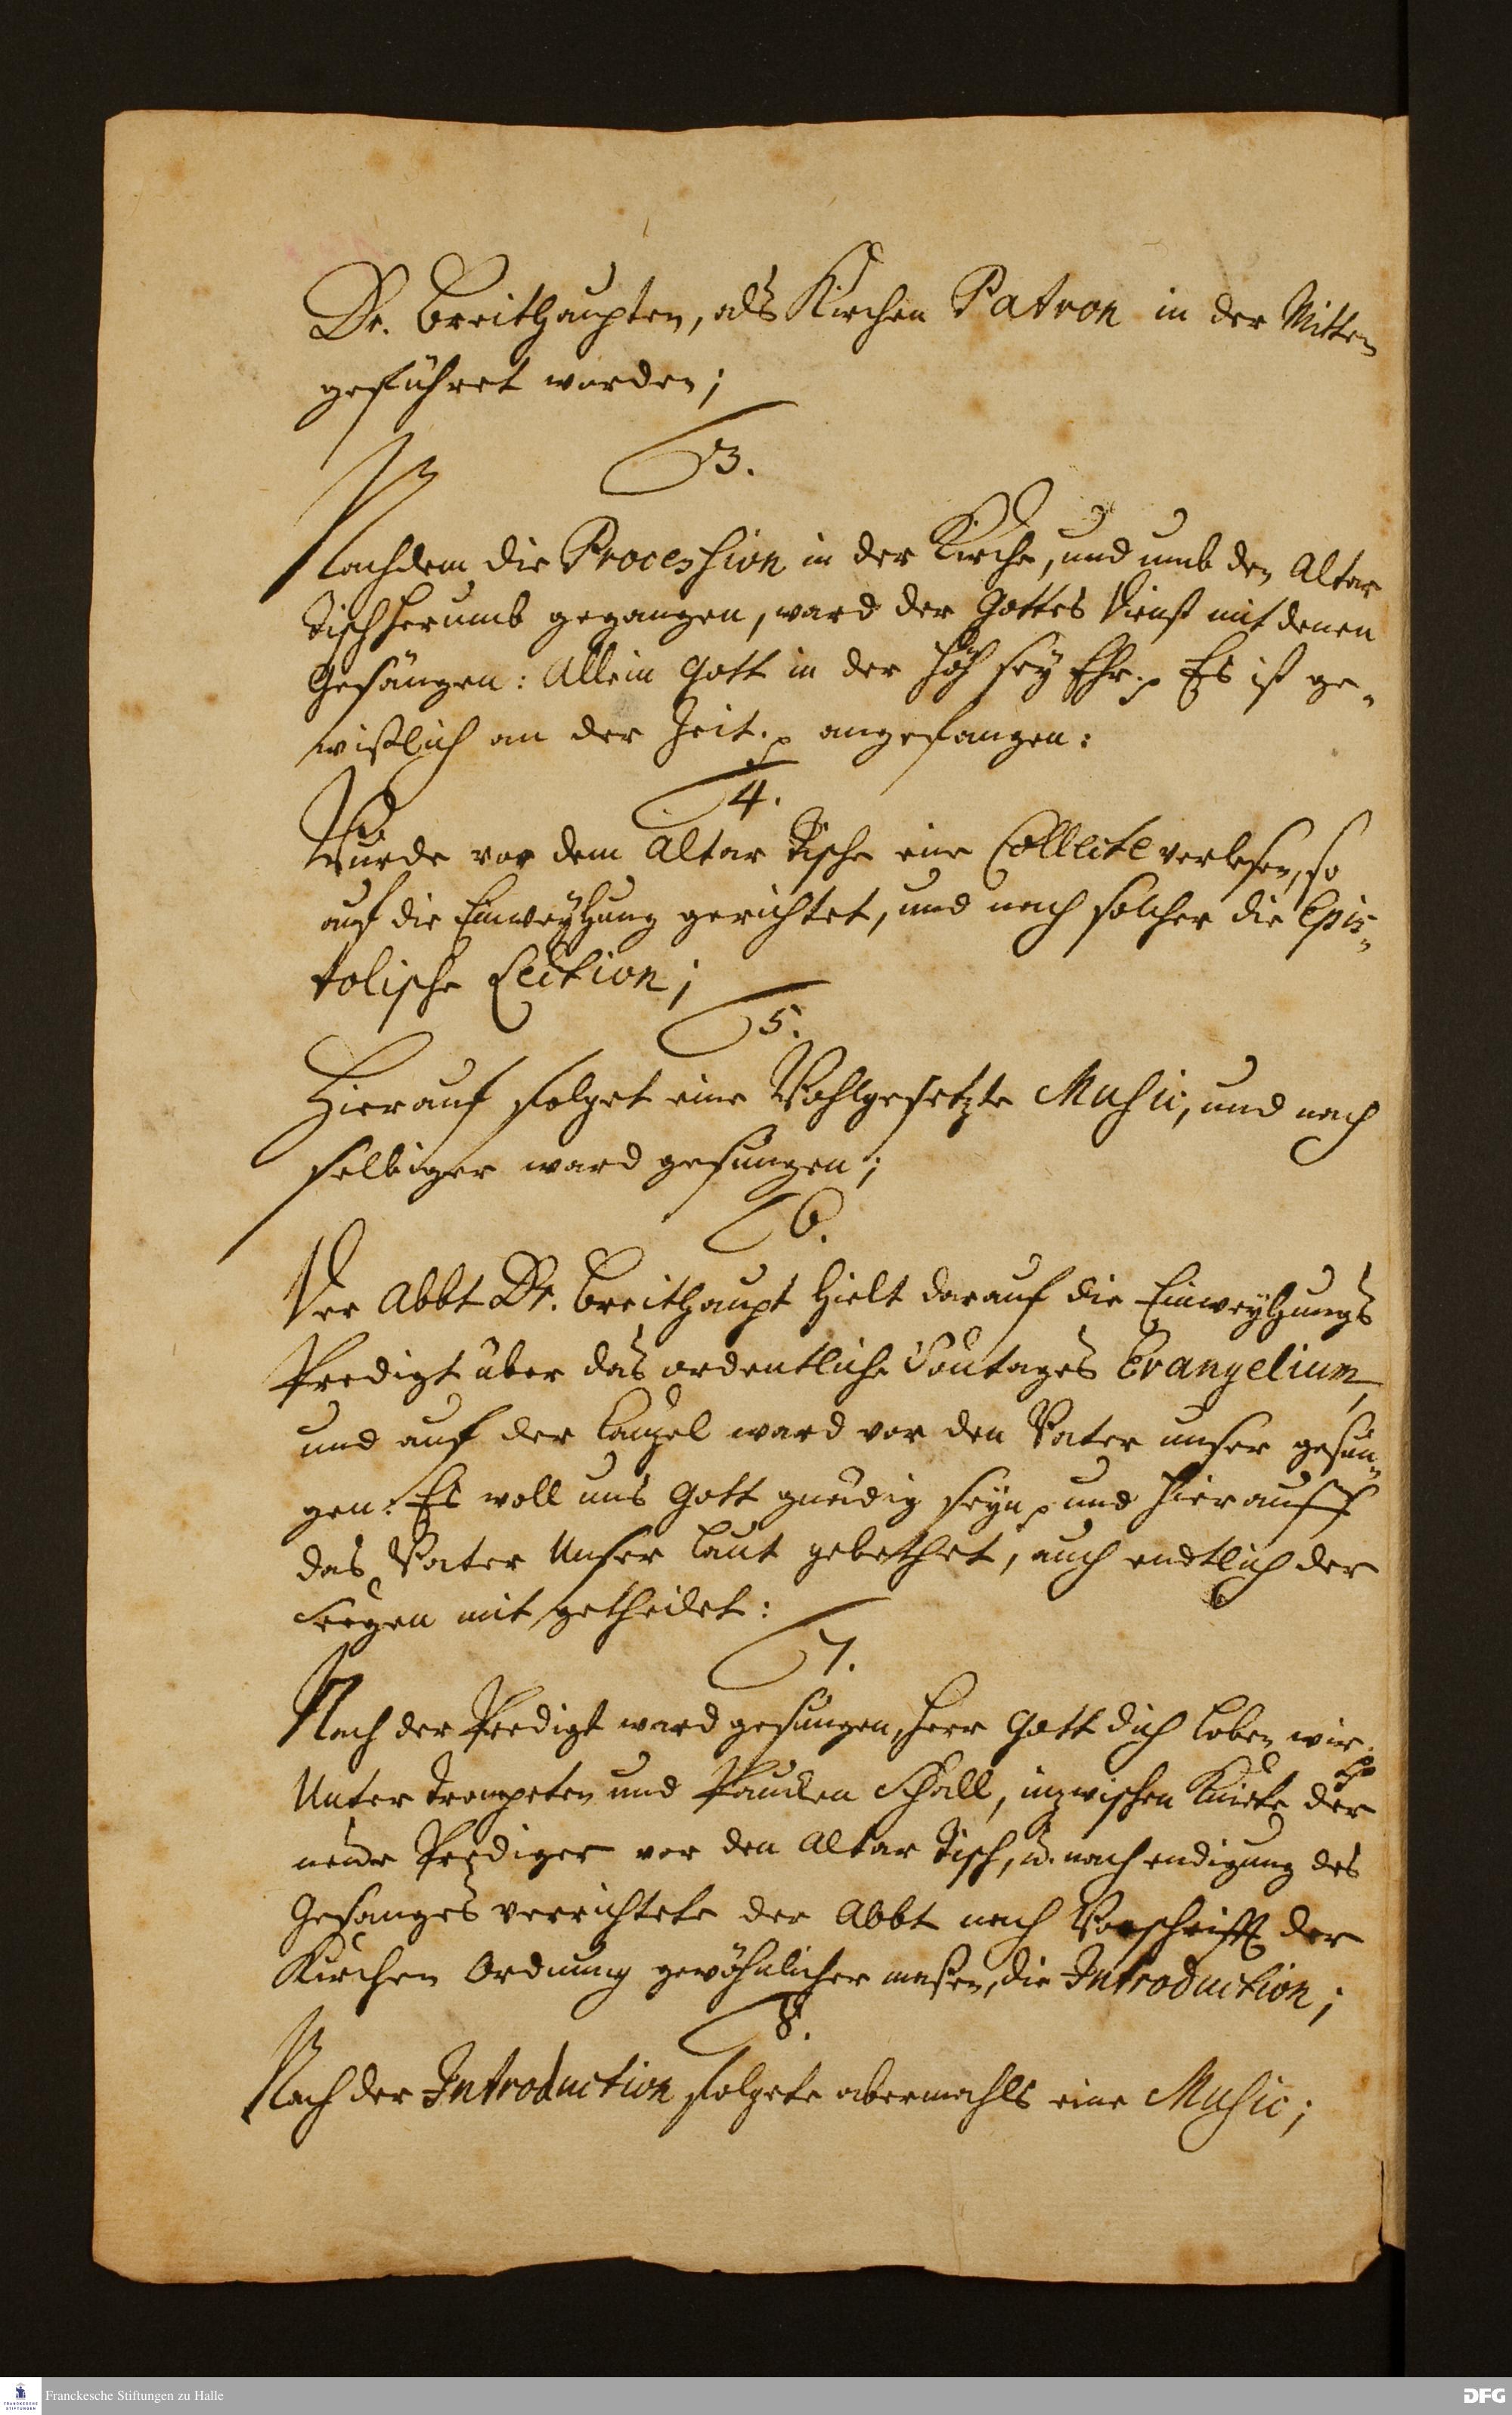 Dr. Breithaupten, als Kirchen Patron in der Mitten
geführet worden;
3.
Nachdem die Procession in der Kirche, und umb den Altar
Tisch herumb gegangen, ward der Gottes Dienst mit denen
Gesängen: Allein Gott in der Höh sey Ehr. p Es ist ge-
wißlich an der Zeit. p angefangen:
4.
Wurde vor dem Altar Tische eine Collecte verlesen, so
auf die Einweyhung gerichtet, und nach solcher die Epis-
tolische Lection;
5.
Hierauf folget eine Wohlgesetzte Music, und nach
selbiger ward gesungen;
6.
Der Abbt Dr. Breithaupt hielt darauf die Einweyhungs
Predigt über das ordentliche Sontages Evangelium,
und auf der Cantzel ward vor den Vater unser gesun-
gen: Es woll uns Gott gnädig seyn p und hierauff
das Vater Unser laut gebethet, auch endtlich der
Seegen mit getheilet:
7.
Nach der Predigt ward gesungen, Herr Gott dich loben wir. p
Unter Trompeten und Paucken Schall, inzwischen kniete der
neue Prediger vor den Altar Tisch, u. nach endigung des
Gesanges verrichtete der Abbt nach Vorschrifft der
Kirchen Ordnung gewöhnlicher maßen, die Introduction;
8.
Nach der Introduction folgete abermahls eine Music;
Franckesche Stiftungen zu Halle
DFG